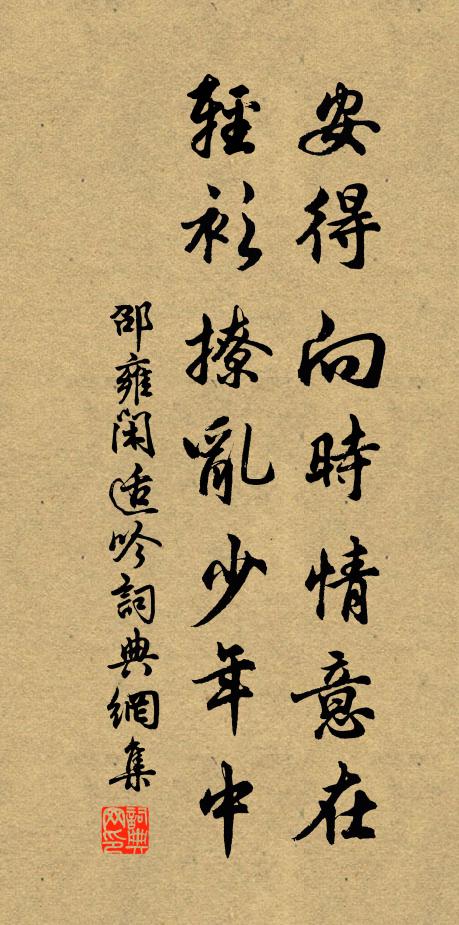 安得向時情意在
輕衫撩亂少年中
邵雍閑適吟詞典網集
詞典网印